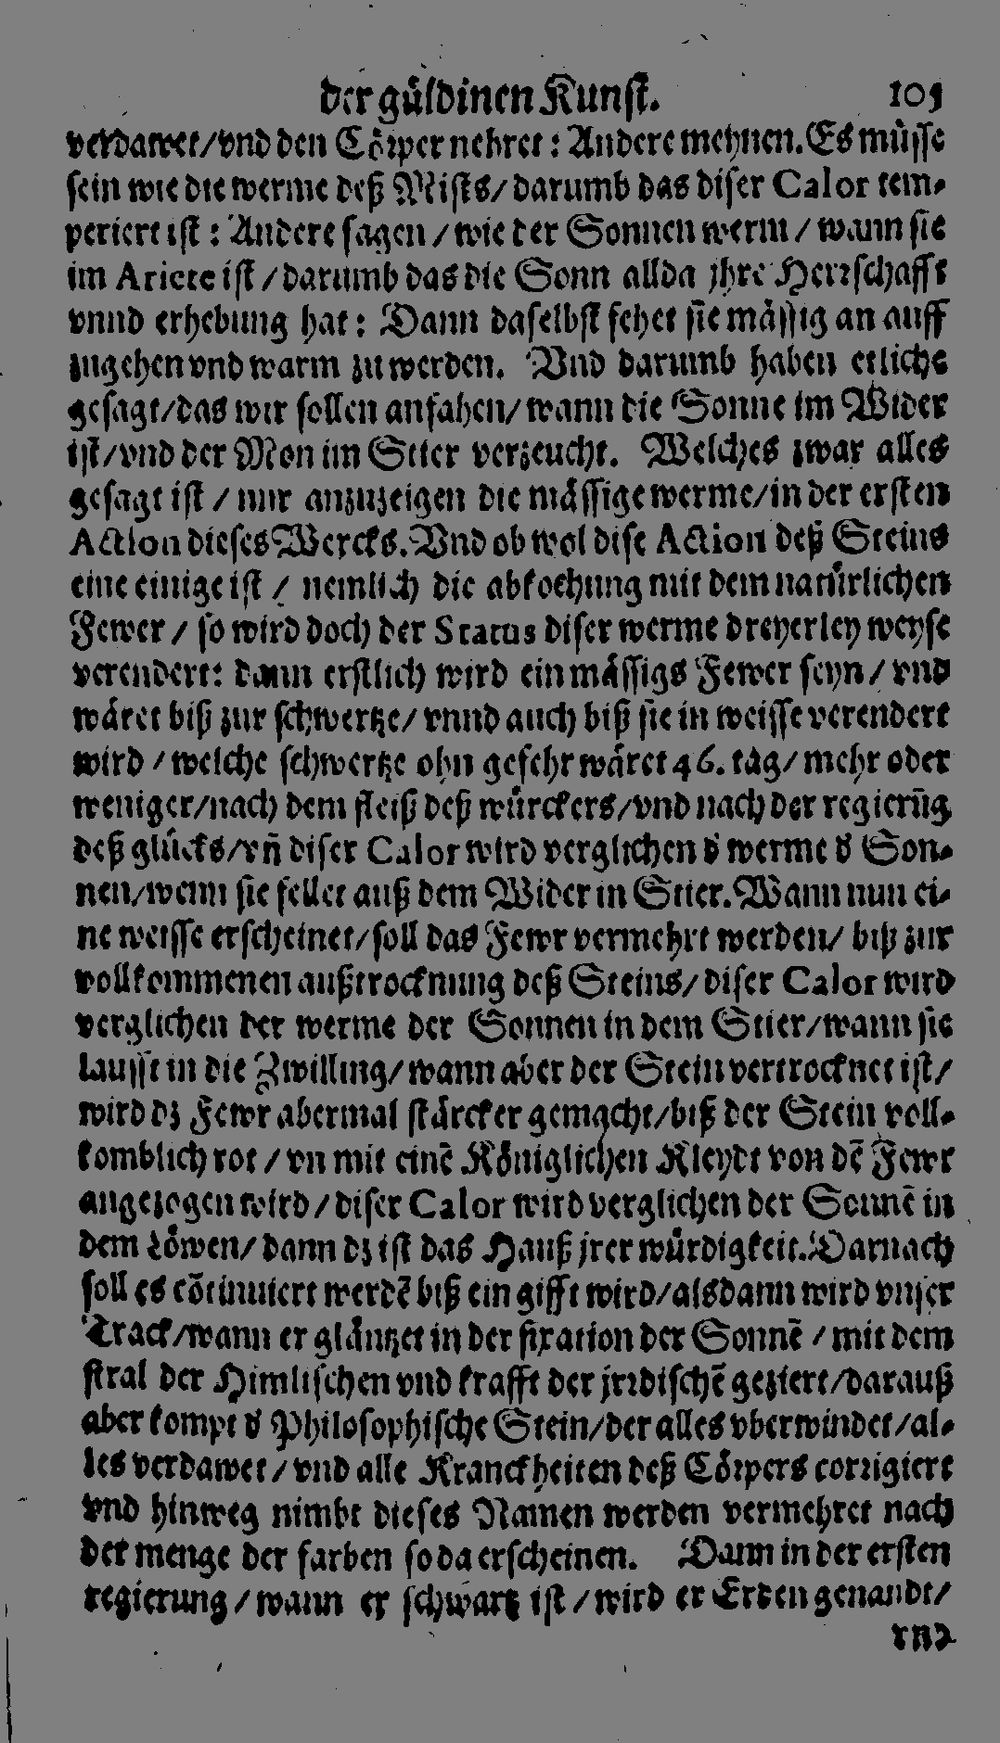 der güldinen Kunst. 105
verdawet/vnd den Cörper nehret: Andere meynen. Es müsse
sein wie die werme deß Mists/darumb das diser Calor tem-
periert ist: Andere sagen/wie der Sonnen werm/wann sie
im Ariete ist/darumb das die Sonn allda jhre Herrschafft
vnnd erhebung hat: Dann daselbst fehet sie mässig an auff
zugehen vnd warm zu werden. Vnd darumb haben etliche
gesagt/das wir sollen anfahen/wann die Sonne im Wider
ist/vnd der Mon im Stier verzeucht. Welches zwar alles
gesagt ist/nur anzuzeigen die mässige werme/in der ersten
Action dieses Wercks. Vnd ob wol dise Action deß Steins
eine einige ist/nemlich die abkochung mit dem natürlichen
Fewer/so wird doch der Status diser werme dreyerley weyse
verendert: dann erstlich wird ein mässigs Fewer seyn/vnd
wäret biß zur schwertze/vnnd auch biß sie in weisse verendert
wird/welche schwertze ohn gefehr wäret 46. täg/mehr oder
weniger/nach dem fleiß deß würckers/vnd nach der regierūg
deß glücks/vñ diser Calor wird verglichen d' werme d' Son-
nen/wenn sie fellet auß dem Wider in Stier. Wann nun ei-
ne weisse erscheinet/soll das Fewr vermehrt werden/biß zur
vollkommenen außtrocknung deß Steins/diser Calor wird
verglichen der werme der Sonnen in dem Stier/wann sie
laufft in die Zwilling/wann aber der Stein vertrocknet ist/
wird dz Fewr abermal stärcker gemacht/biß der Stein voll-
komblich rot/vn mit einē Königlichen Kleydt von dē Fewr
angezogen wird/diser Calor wird verglichen der Sonnē in
dem Löwen/dann dz ist das Hauß jrer würdigkeit. Darnach
soll es cōtinuiert werdē biß ein gifft wird/alsdann wird vnser
Track/wann er gläntzet in der fixation der Sonnē/mit dem
stral der Himlischen vnd krafft der jrrdischē geziert/darauß
aber kompt d' Philosophische Stein/der alles vberwindet/al-
les verdawet/vnd alle Kranckheiten deß Cörpers corrigiert
vnd hinweg nimbt dieses Namen werden vermehret nach
der menge der farben so da erscheinen. Dann in der ersten
regierung/wann er schwartz ist/wird er Erden genandt/
vnd